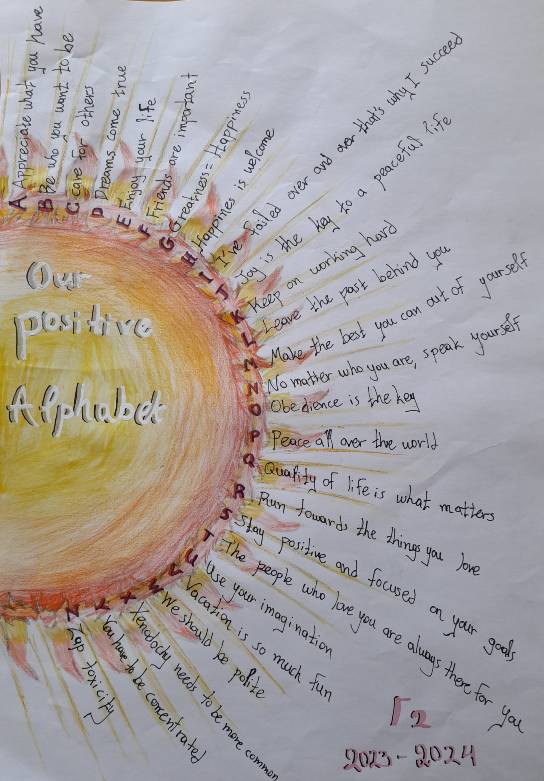 Our
positive
Alphabet
A Appreciate what you have
B Be who you want to be
C care for others
D Dreams come true
E Enjoy your life
F Friends are important
G Greatness = Happiness
H Happines is welcome
I I've failed over and over that's why I succeed
J Joy is the key to a peaceful life
K Keep on working hard
L Leave the past behind you
M Make the best you can out of yourself
N No matter who you are, speak yourself
O Obedience is the key
P Peace all over the world
Q Quality of life is what matters
R Run towards the things you love
S Stay positive and focused on your goals
T The people who love you are always there for you
U Use your imagination
V Vacation is so much fun
W We should be polite
X Xenodochy needs to be more common
Y You have to be concentrated
Z Zap toxicity
Γ2
2023-2024